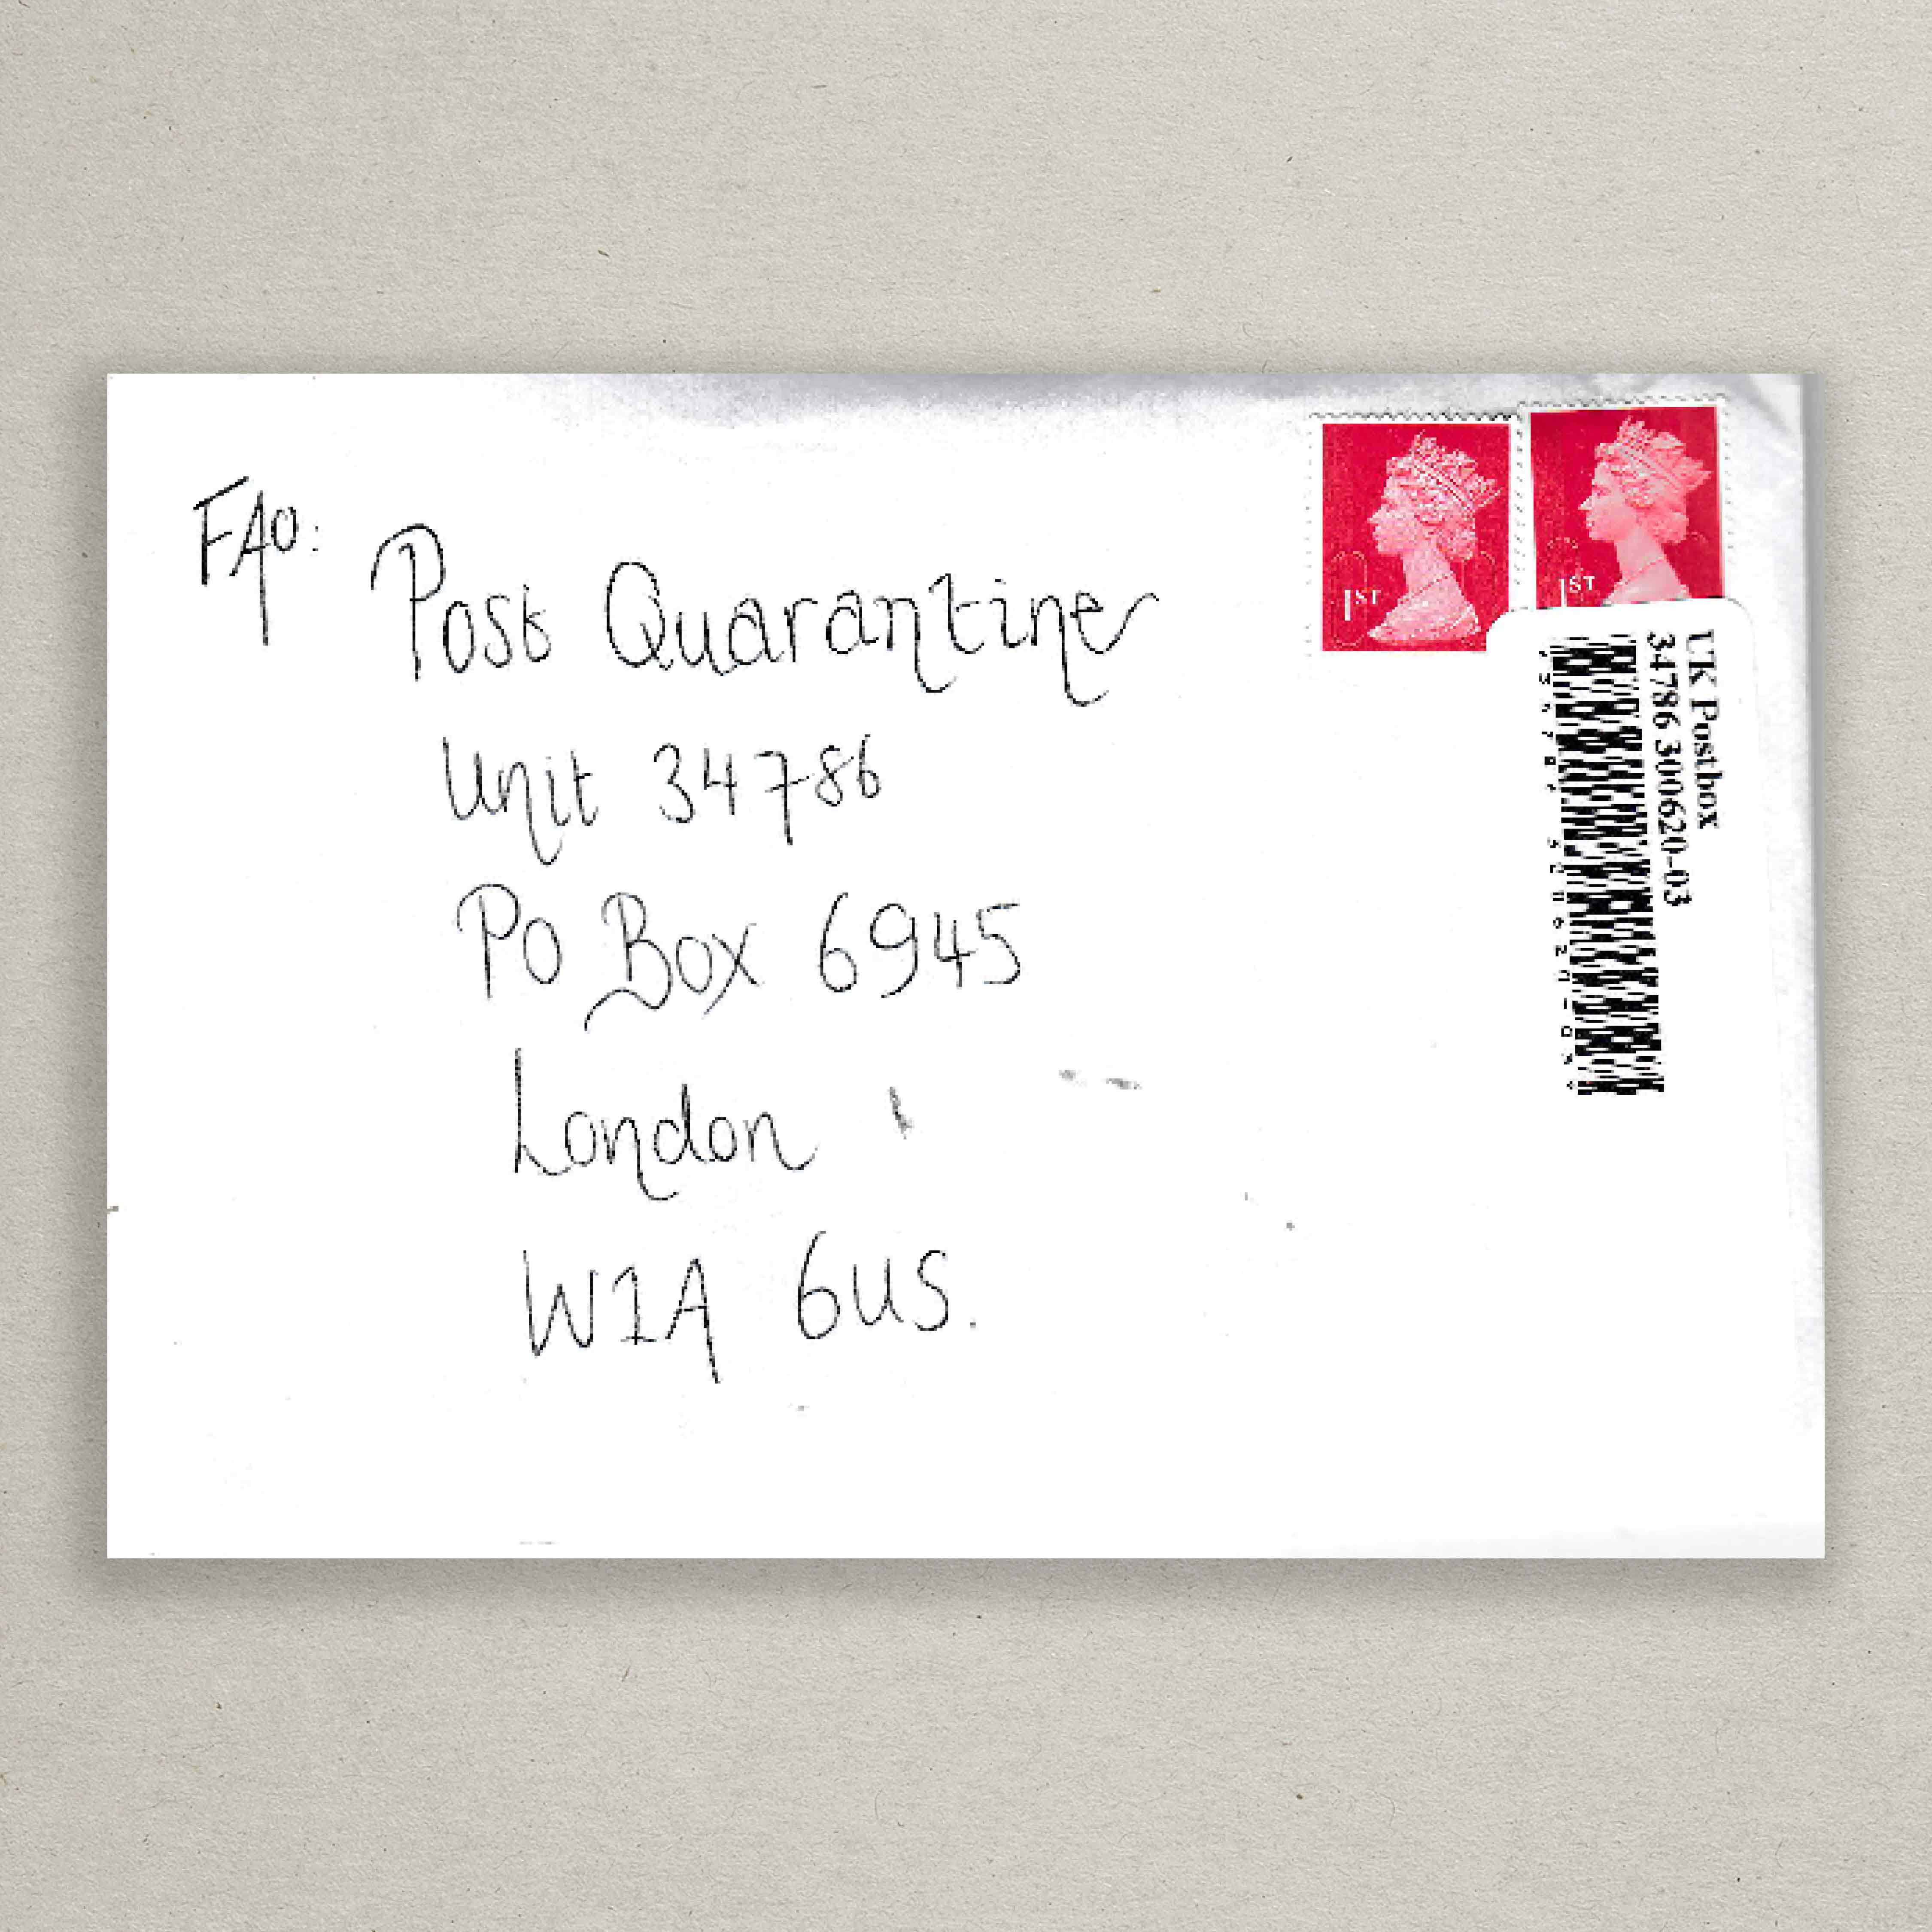 FAO:
Post Quarantine
Unit 34786
PO Box 6945
London
W1A 6US.
1ST
1ST
UK Postbox
34786 300620-03